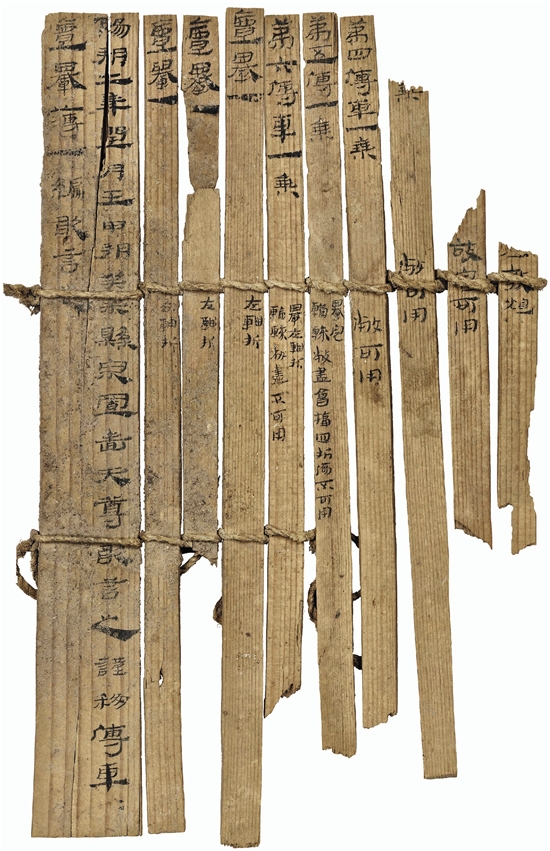 可用
乘 敝可用
第四傳車一乘 敝可用
第五傳車一乘 轝完
輪轅敝盡會楅四折傷不可用
第六傳車一乘 轝左軸折
輪轅敝盡不可用
亶轝一 左軸折
亶轝一 左軸折
亶轝一 左軸折
陽朔二年閏月壬申朔癸未縣泉置嗇夫尊敢言之謹移傳車
亶轝簿一編敢言之